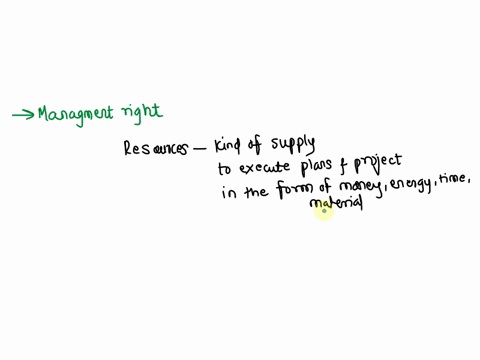 → Managment right
Resources — Kind of supply
to execute plans & project
in the form of money, energy, time,
material